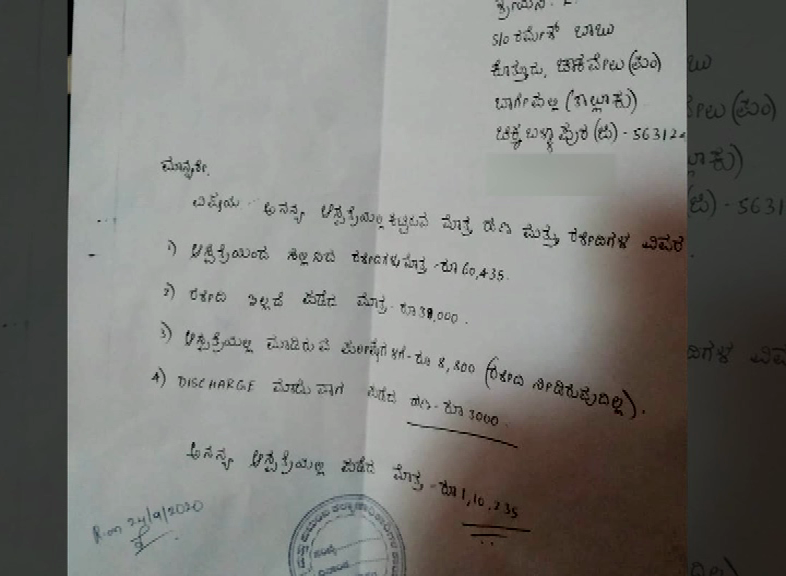 ಶ್ರೀಮತಿ.
S/o ರಮೇಶ್ ಬಾಬು
ಕೊತ್ತೂರು, ಚಾಕವೇಲು (ಪೋಂ)
ಬಾಗೇಪಲ್ಲಿ (ತಾಲ್ಲೂಕು)
ಚಿಕ್ಕಬಳ್ಳಾಪುರ (ಜಿ) - 56312
ಮಾನ್ಯರೇ,
ವಿಷಯ - ಅನನ್ಯ ಆಸ್ಪತ್ರೆಯಲ್ಲಿ ಕಟ್ಟಿರುವ ಮೊತ್ತ ಹಣ ಮತ್ತು ರಶೀದಿಗಳ ವಿವರ
1) ಆಸ್ಪತ್ರೆಯಿಂದ ರಶೀದಿಗಳು ಮೊತ್ತ - ರೂ 60,435.
2) ರಶೀದಿ ಇಲ್ಲದೆ ಪಡೆದ ಮೊತ್ತ - ರೂ 38,000.
3) ಆಸ್ಪತ್ರೆಯಲ್ಲಿ ಮಾಡಿರುವ ಪರೀಕ್ಷೆಗಳಿಗೆ - ರೂ 8,800 (ರಶೀದಿ ನೀಡಿರುವುದಿಲ್ಲ).
4) DISCHARGE ಮಾಡುವಾಗ ಪಡೆದ ಹಣ - ರೂ 3000
ಅನನ್ಯ ಆಸ್ಪತ್ರೆಯಲ್ಲಿ ಪಡೆದ ಮೊತ್ತ - ರೂ 1,10,235
R.on 24/9/2020